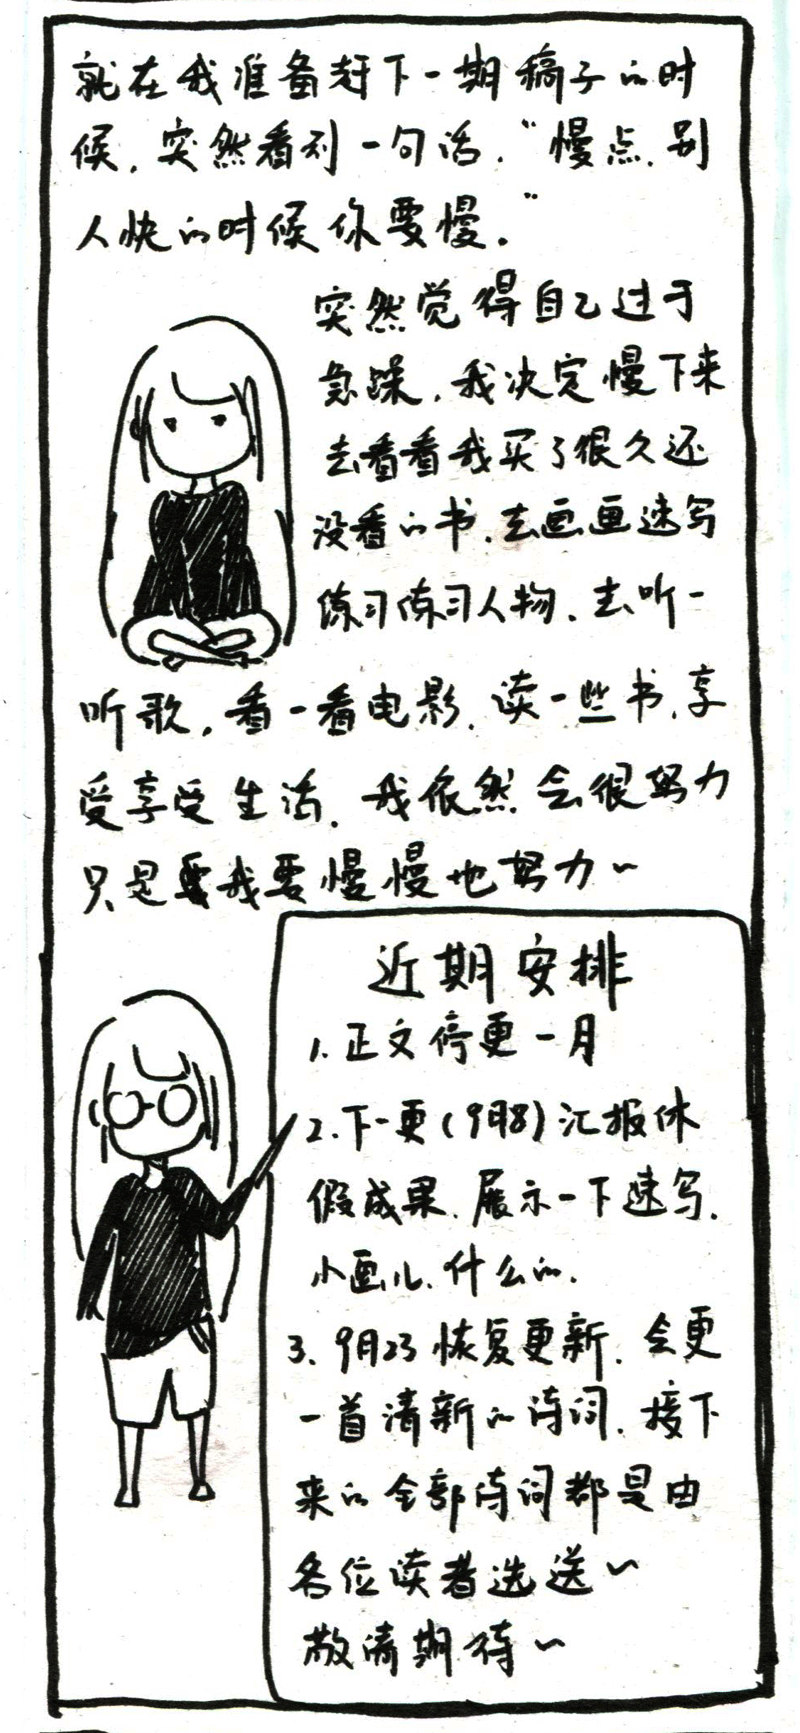 就在我准备赶下一期稿子的时
候，突然看到一句话，“慢点，别
人快的时候你要慢。”
突然觉得自己过于
急躁，我决定慢下来
去看看我买了很久还
没看的书，去画画速写
练习练习人物，去听一
听歌，看一看电影，读一些书，享
受享受生活，我依然会很努力
只是要我要慢慢地努力~
近期安排
1.正文停更一月
2.下一更(9月8)汇报休
假成果，展示一下速写，
小画儿，什么的，
3.9月23恢复更新，会更
一首清新的诗词，接下
来的全部诗词都是由
各位读者选送~
敬请期待~